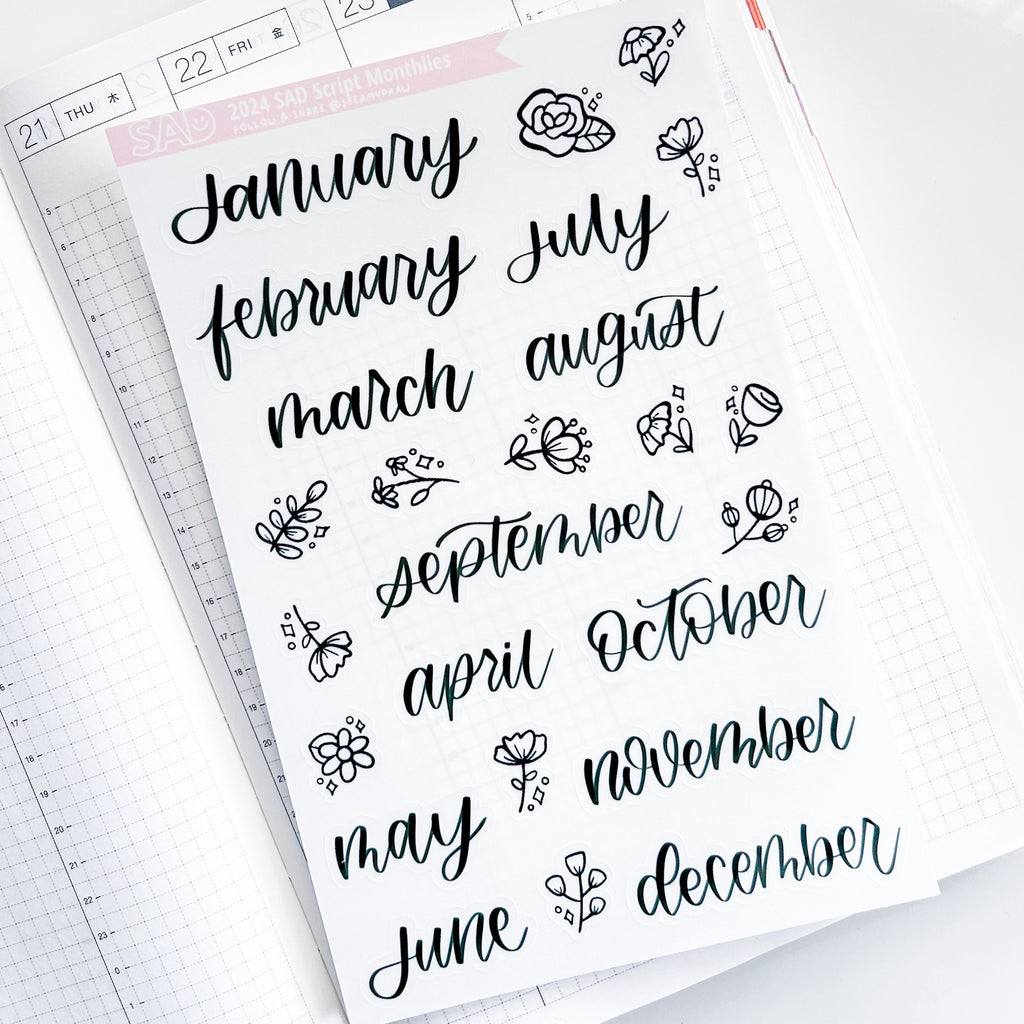 21 THU 木
22 FRI 金
23
SAD 2024 SAD Script Monthlies
FOLLOW & SHARE @STEAMYDRAW
january
february
july
march
august
september
april
october
may
november
june
december
5
6
7
8
9
10
11
12
13
14
15
16
17
18
19
20
21
16
17
18
19
20
21
22
23
0
1